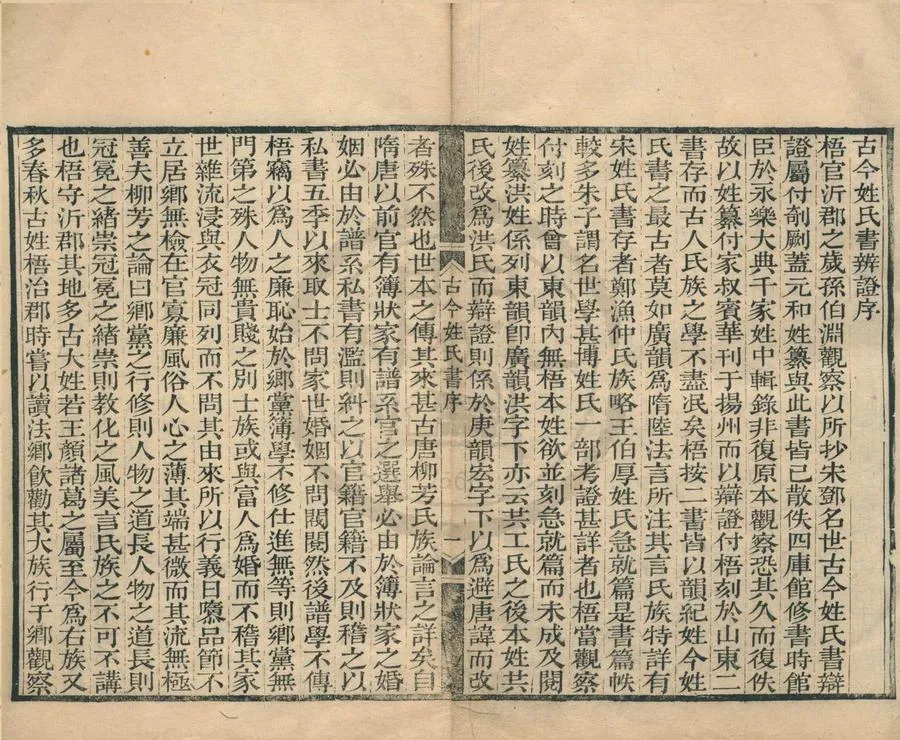 古今姓氏書辨證序
梧官沂郡之歲孫伯淵觀察以所抄宋鄧名世古今姓氏書辯
證屬付剞劂蓋元和姓纂與此書皆已散佚四庫館修書時館
臣於永樂大典千家姓中輯錄非復原本觀察恐其久而復佚
故以姓纂付家叔賓華刊于揚州而以辯證付梧刻於山東二
書存而古人氏族之學不盡泯矣梧按二書皆以韻紀姓今姓
氏書之最古者莫如廣韻爲隋陸法言所注其言氏族特詳有
宋姓氏書存者鄭漁仲氏族略王伯厚姓氏急就篇是書篇帙
較多朱子謂名世學甚博姓氏一部考證甚詳者也梧當觀察
付刻之時曾以東韻內無梧本姓欲並刻急就篇而未成及閱
姓纂洪姓係列東韻卽廣韻洪字下亦云共工氏之後本姓共
氏後改爲洪氏而辯證則係於庚韻宏字下以爲避唐諱而改
古今姓氏書序
一
者殊不然也世本之傳其來甚古唐柳芳氏族論言之詳矣自
隋唐以前官有簿狀家有譜系官之選舉必由於簿狀家之婚
姻必由於譜系私書有濫則糾之以官籍官籍不及則稽之以
私書五季以來取士不問家世婚姻不問閥閱然後譜學不傳
梧竊以爲人之廉恥始於鄉黨簿學不修仕進無等則鄉黨無
門第之殊人物無貴賤之別士族或與富人爲婚而不稽其家
世雜流浸與衣冠同列而不問其由來所以行義日隳品節不
立居鄉無檢在官寡廉風俗人心之薄其端甚微而其流無極
善夫柳芳之論曰鄉黨之行修則人物之道長人物之道長則
冠冕之緒崇冠冕之緒崇則教化之風美言氏族之不可不講
也梧守沂郡其地多古大姓若王顏諸葛之屬至今爲右族又
多春秋古姓梧治郡時嘗以讀法鄉飲勸其大族行于鄉觀察